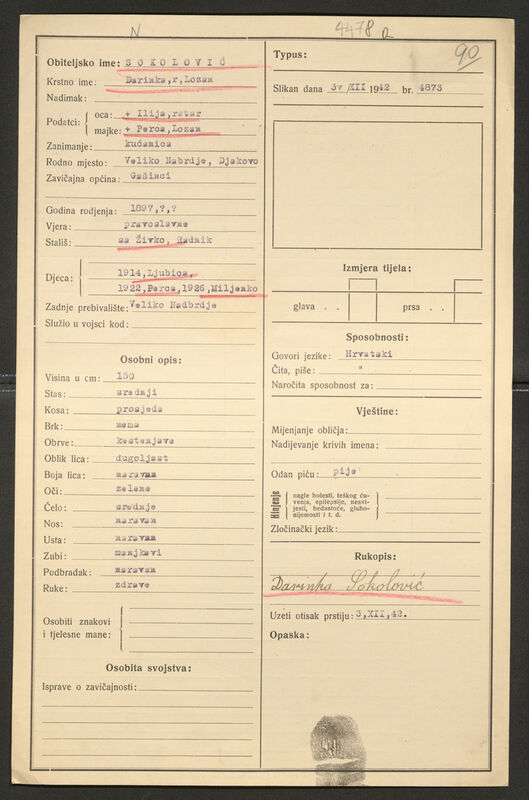 N
4478 a
90
Obiteljsko ime: SOKOLOVIĆ
Krstno ime: Darinka,r,Lozan
Nadimak:
Podatci: oca: + Ilija,ratar
majke: + Perca,Lozan
Zanimanje: kućanica
Rodno mjesto: Veliko Nabrdje, Djakovo
Zavičajna općina: Gašinci
Godina rodjenja: 1897,?,?
Vjera: pravoslavne
Stališ: sa Živko, Radnik
Djeca: 1914,Ljubica,
1922,Perca,1926,Miljenko
Zadnje prebivalište: Veliko Nadbrdje
Služio u vojsci kod:
Osobni opis:
Visina u cm: 150
Stas: srednji
Kosa: prosjeda
Brk: nema
Obrve: kestenjave
Oblik lica: dugoljast
Boja lica: naravan
Oči: zelene
Čelo: srednje
Nos: naravan
Usta: naravan
Zubi: manjkavi
Podbradak: naravan
Ruke: zdrave
Osobiti znakovi
i tjelesne mane:
Osobita svojstva:
Isprave o zavičajnosti:
Typus:
Slikan dana 3, /XII 1942 br. 4873
Izmjera tijela:
glava . . prsa . .
Sposobnosti:
Govori jezike: Hrvatski
Čita, piše: "
Naročita sposobnost za:
Vještine:
Mijenjanje obličja:
Nadijevanje krivih imena:
Odan piću: pije
Hinjenje
nagle bolesti, teškog ču-
venja, epilepsije, nesvi-
jesti, bedastoće, gluho-
nijemosti i t. d.
Zločinački jezik:
Rukopis:
Darinka Sokolović
Uzeti otisak prstiju: 3,XII,42.
Opaska: